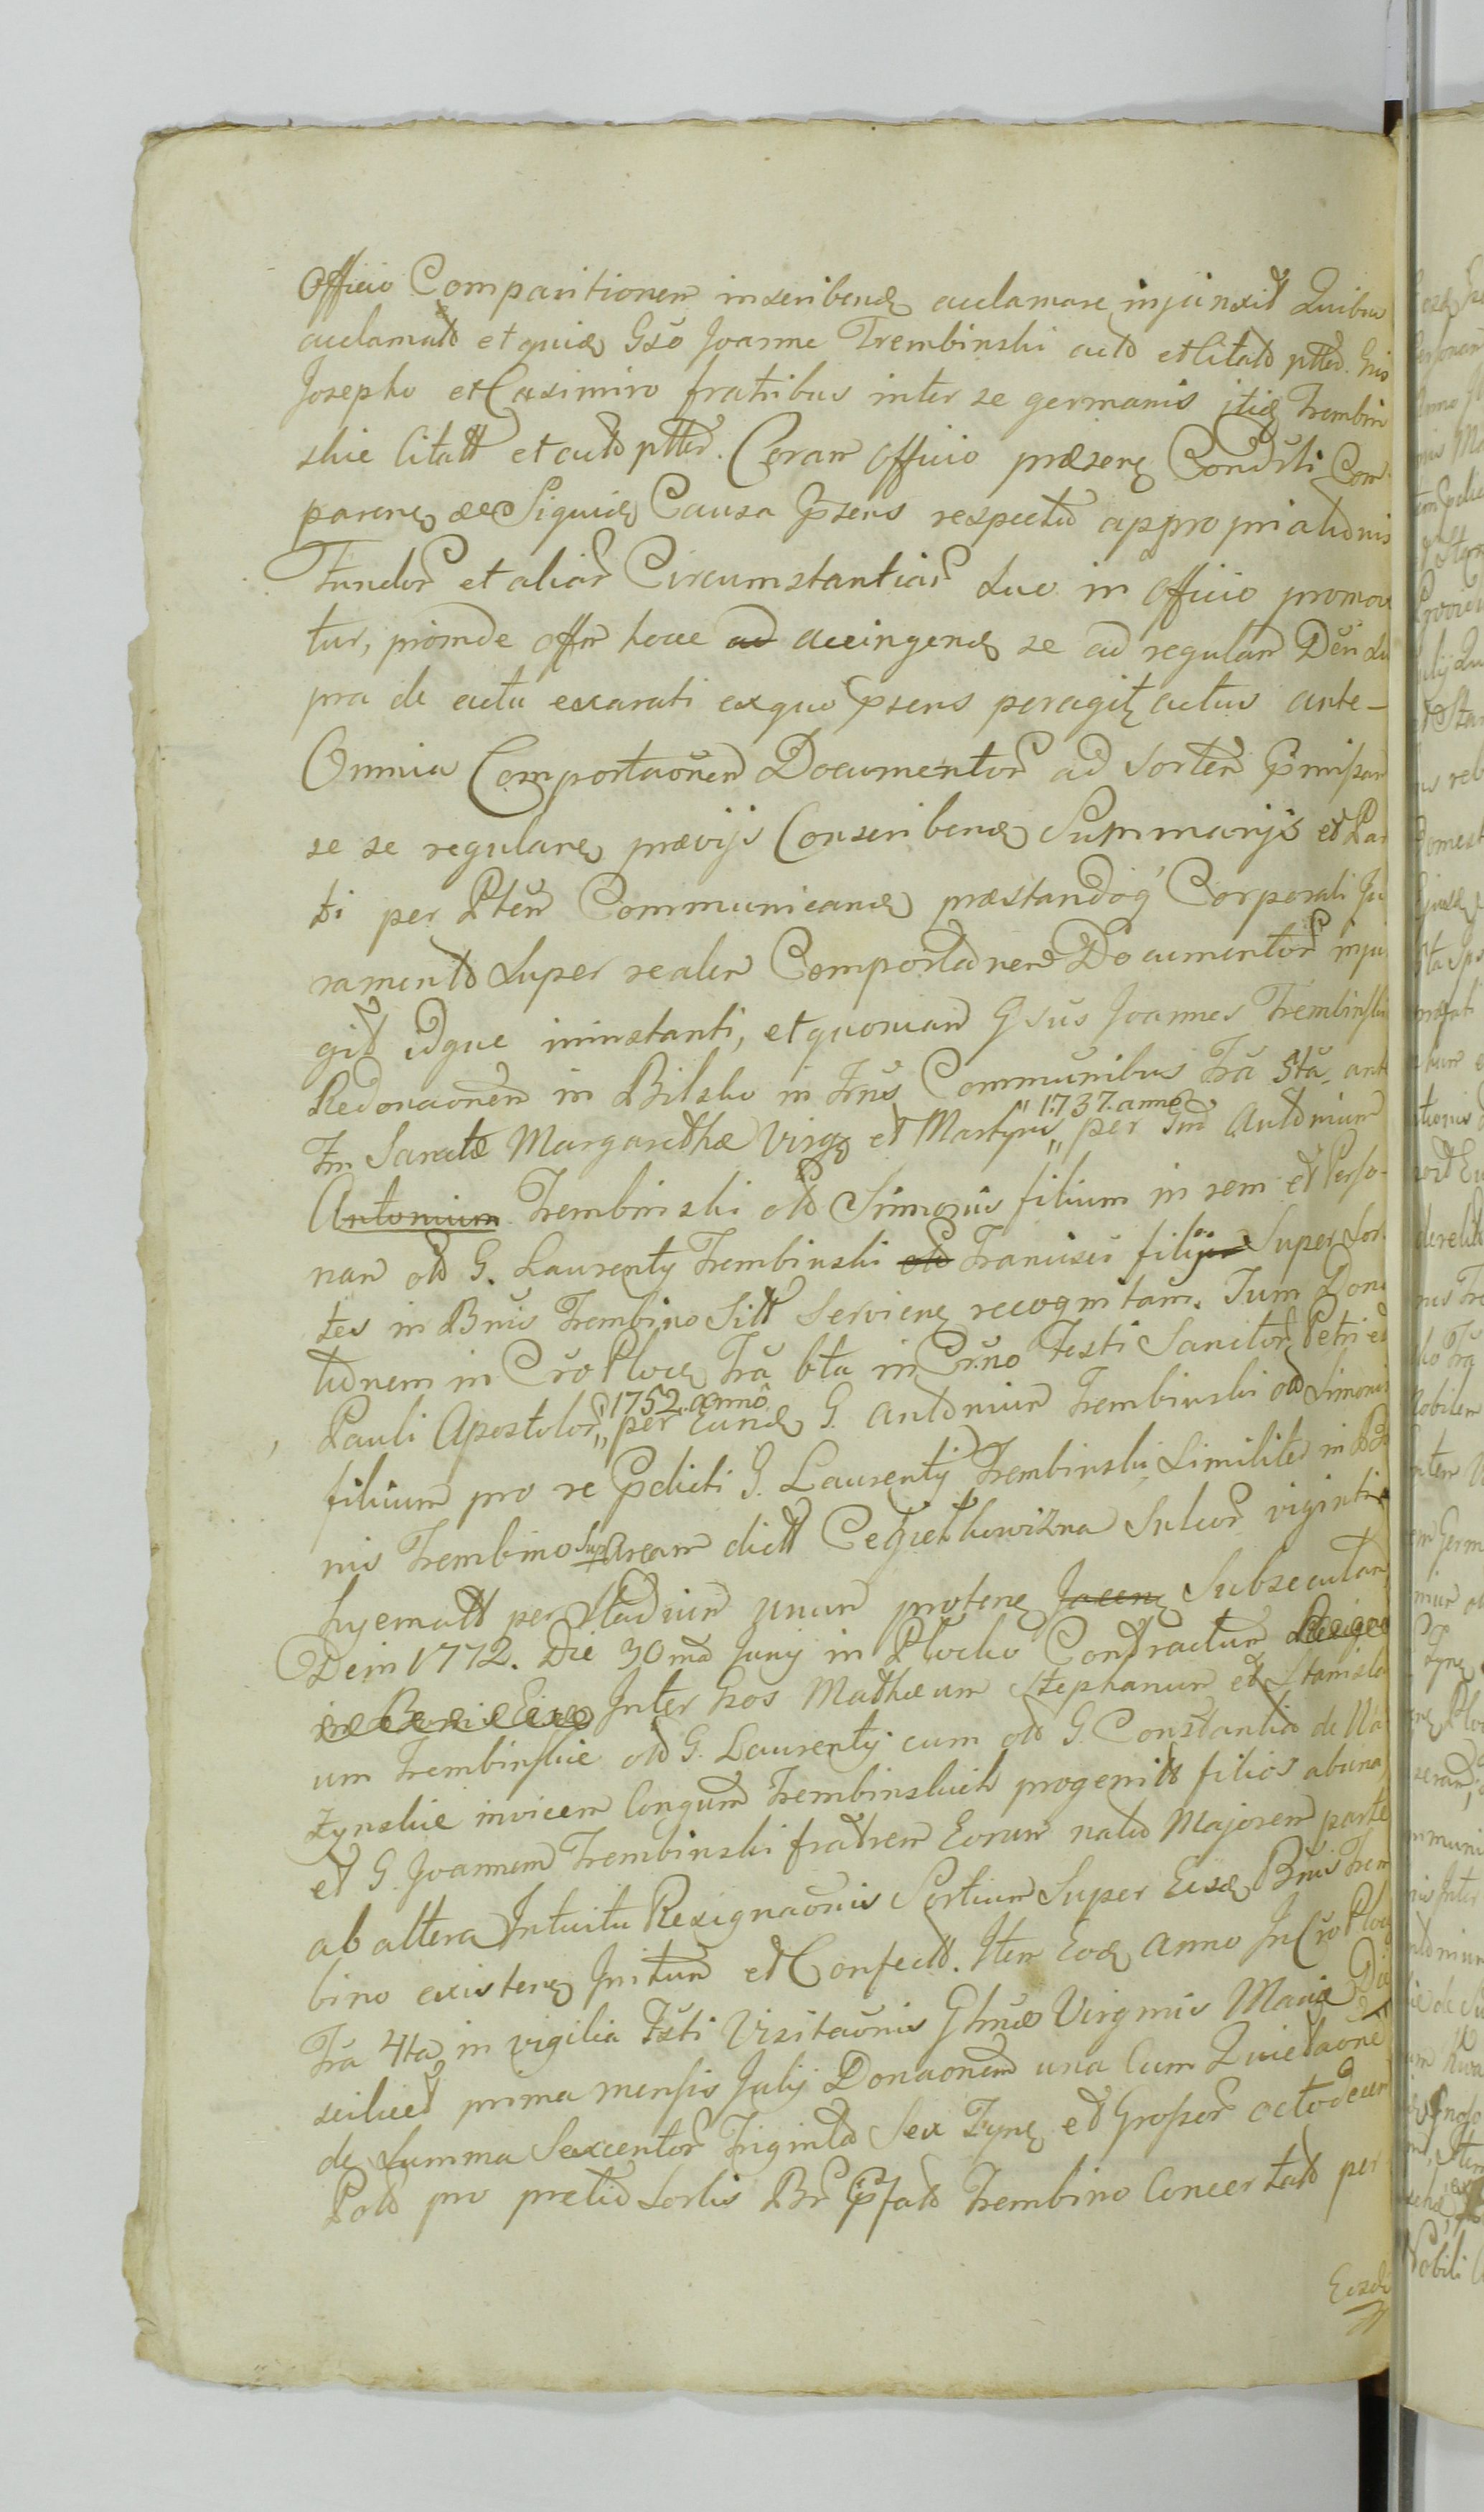 Officio Comparitionem inscribend acclamare injunxit Quibus
acclamatõ et quid Gso Joanne Trembinski actõ et Citatõ ptte. Gnis
Josepho et Casimiro fratribus inter se germanis itid Trembin
skie Citatt et actõ ptte. Coram Officio præsen Condescti Com
paren ac Siquid Causa Pñsens respectu appropriationis
Fundor et aliar Circumstantiar Suo in Officio promove
tur, proinde Offm hocce ad accingend se ad regulam Den Su
pra de actu exarati ex quo pñsens peragit actus ante-
Omnia Comportaõnem Documentor ad Sortem
se se regularem prævijs Conscribend Summarijs et Par
ti per Pten Communicand præstandoq Corporali Ju
ramento Super realem Comportaõnem Documentor injun
git idque ininstanti, et quoniam Gsus Joannes Trembinski
Redonaõnem in Bilsko in Trũs Communibus Fra 5ta ante
Fm Sanctæ Margarethæ Virg et Martyris " 1737. anno " per Gm Antonium
Antonium Trembinski olõ Simonis filium in rem et Perso-
nam olõ G. Laurentij Trembinski olõ Francisci filij Super Sor
tes in Bnis Trembino Sitt Servien recognitam. Tum Dona
tionem in Cro Ploc Fra 6ta in Crno Festi Sanctor Petri et
Pauli Apostolor " 1752. anno " per Eund G. Antonium Trembinski olõ Simonis
filium pro re Pdicti G. Laurentij Trembinski Similiter in Bo
nis Trembino Sup Aream dictt Cegielkowizna Sulcor viginti
hyematt per Stadium unum proten Jacen Subsecutam
Dein 1772. Die 30ma Junij in Plocko Contractum
Inter Gsos Mathæum Stephanum et Stanisla
um Trembinskie olõ G. Laurentij cum olõ G. Constantia de
zynskie invicem Congum Trembinskich progenitt filios ab una
et G. Joannem Trembinski fratrem Eorum natu Majorem parte
ab altera Intuitu Resignaõnis Sortium Super Eisd Bnis Trem
bino existen Initum et Confectõ. Item Eod anno In Cro Ploc
Fra 4ta in vigilia Fsti Visitaõnis Glnæ Virginis Mariæ Die
scilicet prima mensis Julij Donaõnem una Cum Quietaone
de Summa Sexcentor Triginta Sex Tyn et Grossor octodecim
Polõ pro pretio Sortis Br Pfatõ Trembino Concertatõ per
Eosde